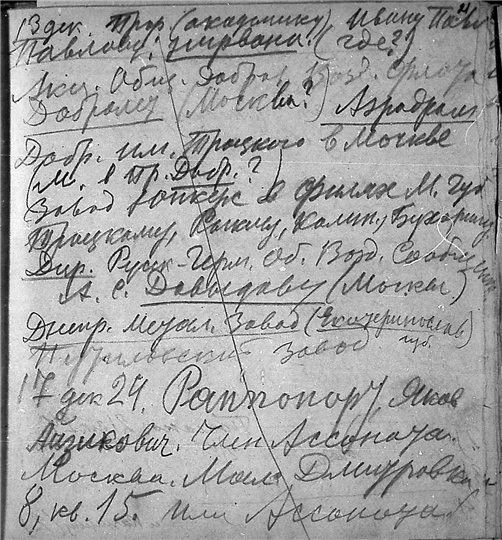 13 дек. Проф. (академику) Ивану Павл
Павлову, (где?)
Акц. Общ. Добров. Возд. Флота
Добролет (Москва?) Аэродром
Добр. им. Троцкого в Москве
(М. в Пр. Добр.?)
Завод Юнкерс в Филях М. Губ
Троцкому, Рыкову, Калин., Бухарину,
Дир. Русск-Герм. Об. Возд. Сообщен
А. С. Давыдову (Москва)
Днепр. Метал. Завод (Екатеринослав)
губ.
завод
17 дек 24. Раппопорт, Яков
Айзикович. Член Ассонота.
Москва. Мал. Дмитровка
8, кв. 15. или Ассонота